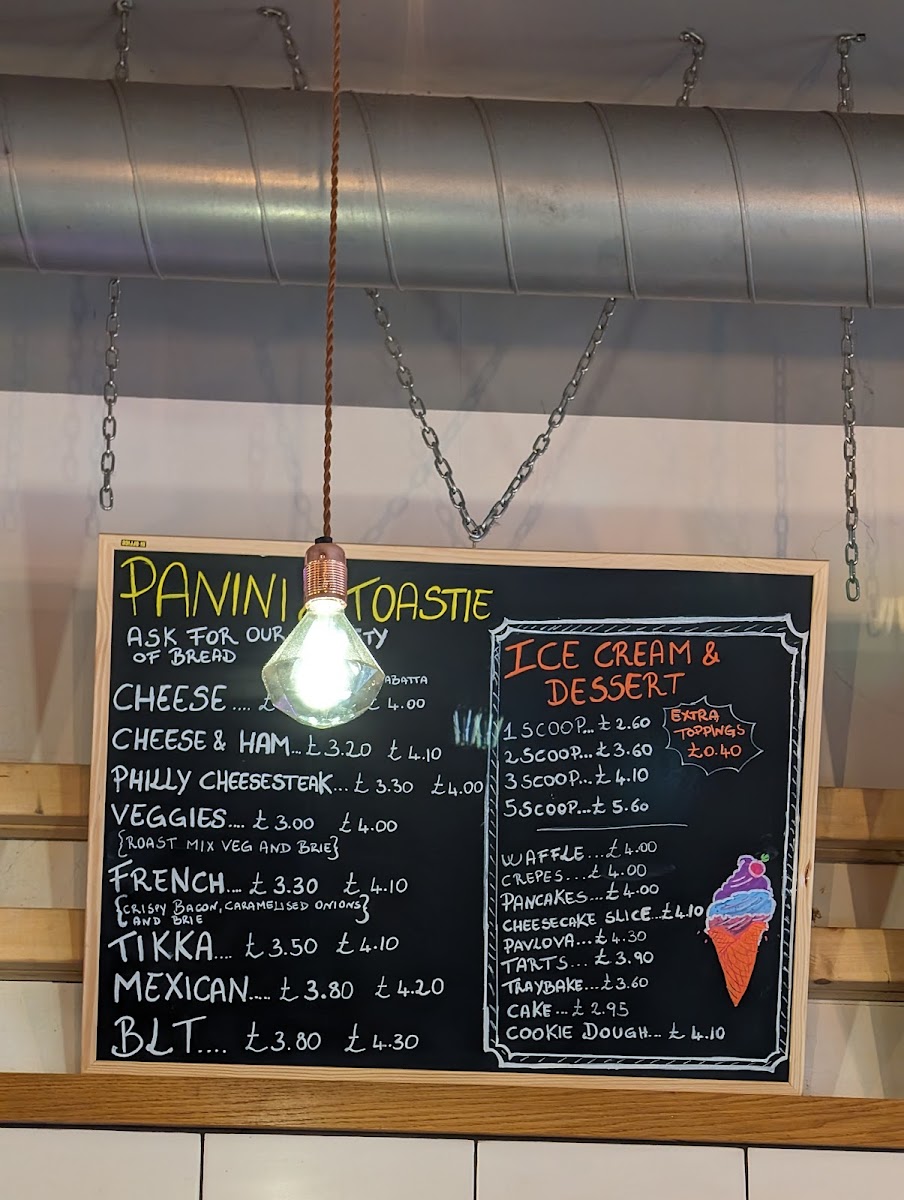 PANINI & TOASTIE
ASK FOR OUR
OF BREAD
CHEESE .... £ 4.00
CHEESE & HAM... £3.20 £4.10
PHILLY CHEESESTEAK... £3.30 £4.00
VEGGIES.... £3.00 £4.00
{ROAST MIX VEG AND BRIE}
FRENCH.... £3.30 £4.10
{CRISPY BACON, CARAMELISED ONIONS}
AND BRIE
TIKKA.... £3.50 £4.10
MEXICAN.... £3.80 £4.20
BLT.... £3.80 £4.30
ICE CREAM &
DESSERT
EXTRA
TOPPINGS
£0.40
1 SCOOP... £2.60
2 SCOOP... £3.60
3 SCOOP... £4.10
5 SCOOP... £5.60
WAFFLE... £4.00
CREPES... £4.00
PANCAKES... £4.00
CHEESECAKE SLICE... £4.10
PAVLOVA... £4.30
TARTS... £3.90
TRAYBAKE... £3.60
CAKE... £2.95
COOKIE DOUGH... £4.10